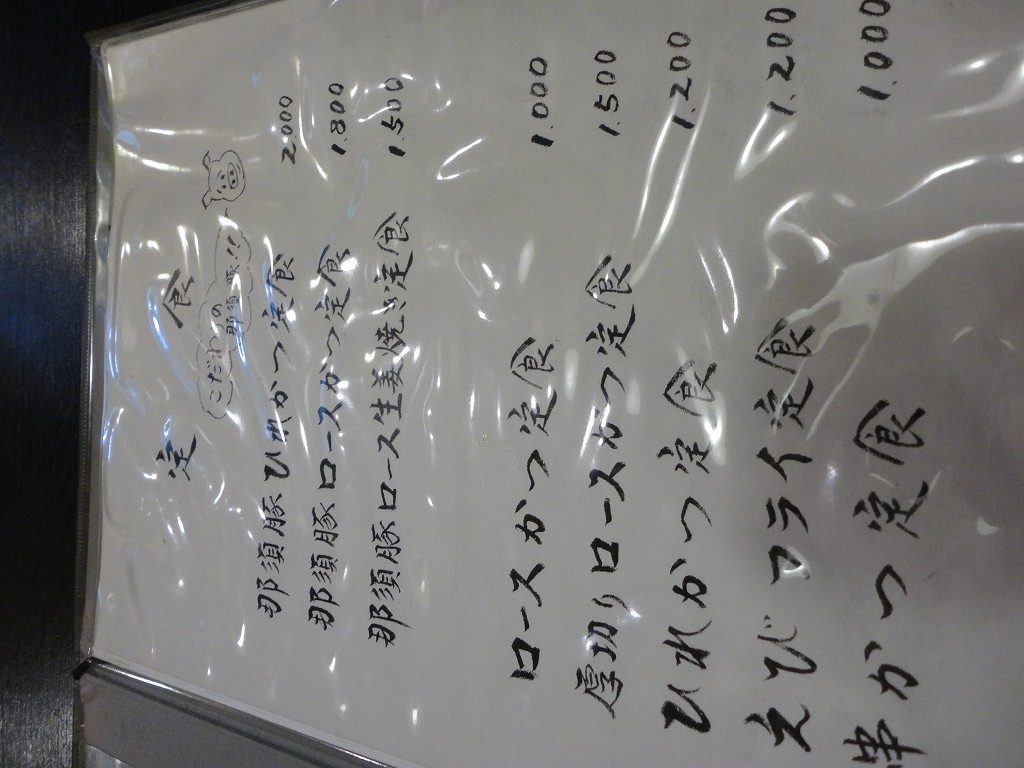 定食
こだわりの
那須豚!!
那須豚ひれかつ定食 2.000
那須豚ロースかつ定食 1.800
那須豚ロース生姜焼き定食 1.500
ロースかつ定食 1.000
厚切りロースカツ定食 1.500
ひれかつ定食 1.200
えびフライ定食 1.200
串かつ定食 1.000